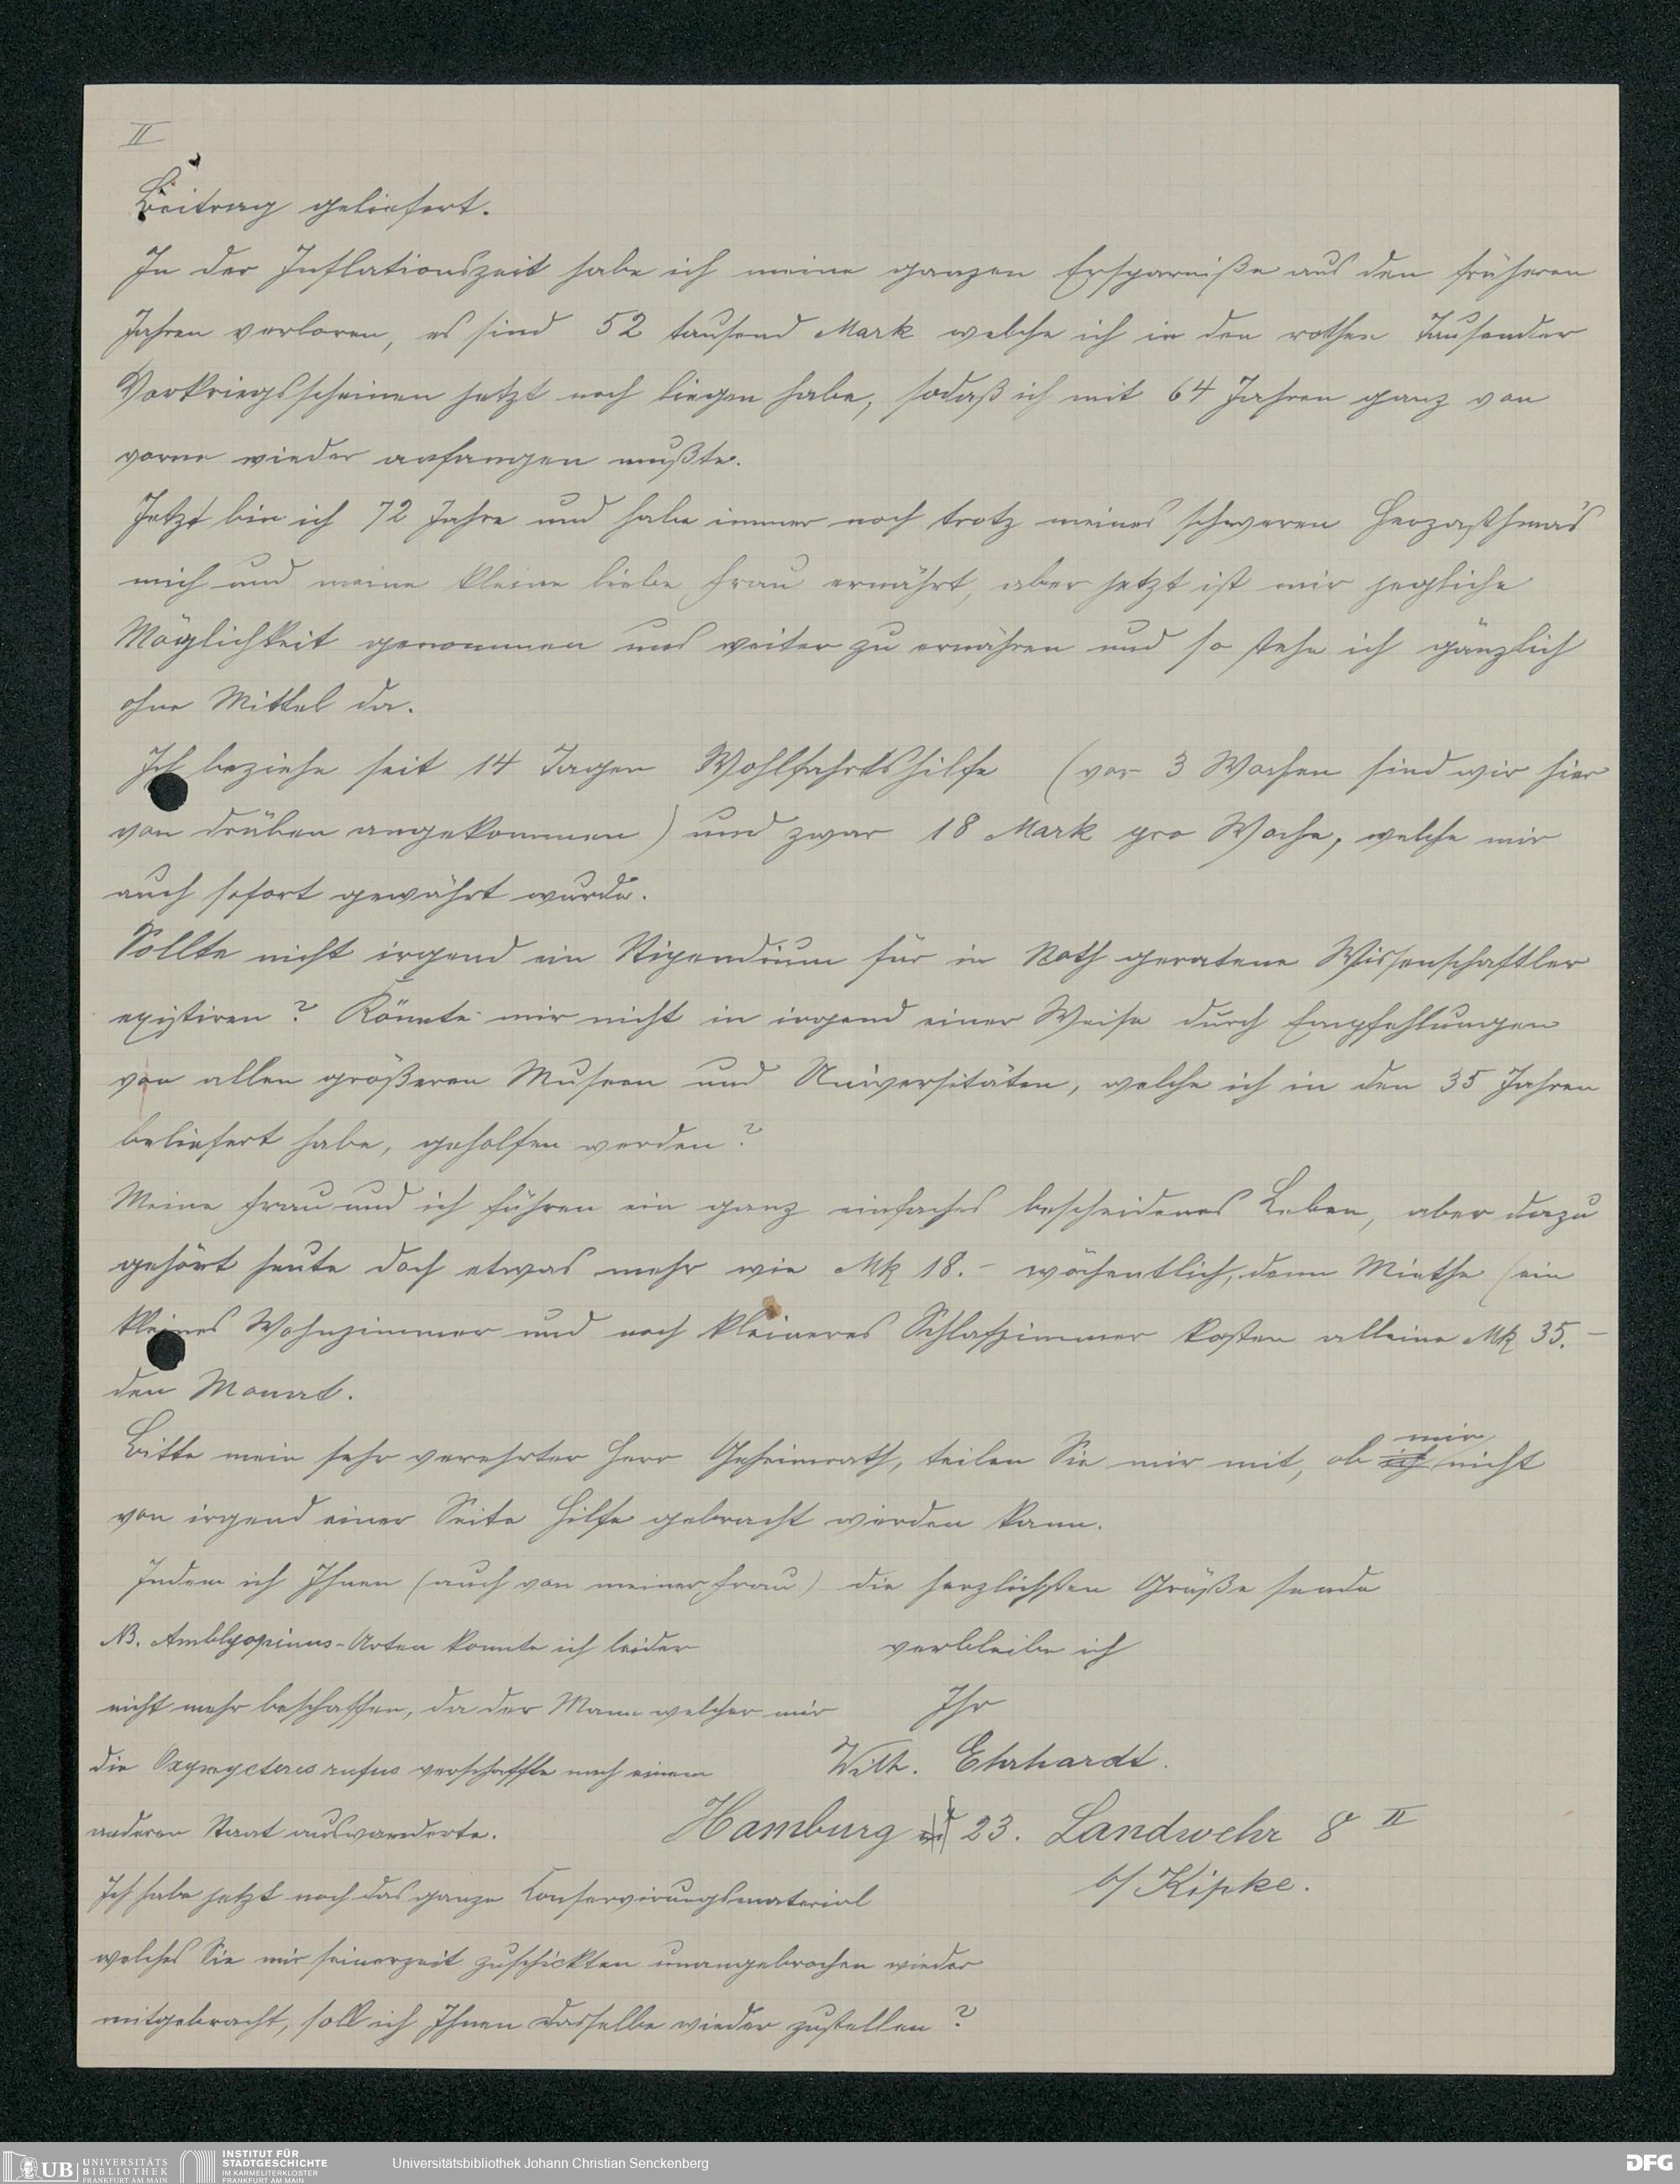 II
Beitrag geliefert.
In der Inflationszeit habe ich meine ganzen Ersparniße aus den früheren
Jahren verloren, es sind 52 tausend Mark welche ich in den rothen Tausender
Vorkriegsscheinen jetzt noch liegen habe, sodaß ich mit 64 Jahren ganz von
vorne wieder anfangen mußte.
Jetzt bin ich 72 Jahre und habe immer noch trotz meines schweren Herzasthma's
mich und meine kleine liebe Frau ernährt, aber jetzt ist mir jegliche
Möglichkeit genommen uns weiter zu ernähren und so stehe ich gänzlich
ohne Mittel da.
Ich beziehe seit 14 Tagen Wohlfahrtshilfe (vor 3 Wochen sind wir hier
von drüben angekommen) und zwar 18 Mark pro Woche, welche mir
auch sofort gewährt wurde.
Sollte nicht irgend ein Stipendium für in Noth geratene Wissenschaftler
existiren? Könnte mir nicht in irgend einer Weise durch Empfehlungen
von allen größeren Museen und Universitäten, welche ich in den 35 Jahren
beliefert habe, geholfen werden?
Meine Frau und ich führen ein ganz einfaches bescheidenes Leben, aber dazu
gehört heute doch etwas mehr wie Mk 18.- wöchentlich, denn Miethe (ein
kleines Wohnzimmer und noch kleineres Schlafzimmer kosten alleine Mk 35.-
den Monat.
Bitte mein sehr verehrter Herr Geheimrath, teilen Sie mir mit, ob ich mir nicht
von irgend einer Seite Hilfe gebracht werden kann.
Indem ich Ihnen (auch von meiner Frau) die herzlichsten Grüße sende
verbleibe ich
Ihr
Wilh. Ehrhardt.
Hamburg 23. Landwehr 8 II
b/ Kipke.
NB. Amblyopinus-Arten konnte ich leider
nicht mehr beschaffen, da der Mann welcher mir
die Oxymycterus rufus verschaffte nach einem
anderen Staat auswanderte.
Ich habe jetzt noch das ganze Conservirungsmaterial
welches Sie mir seinerzeit zuschickten unangebrochen wieder
mitgebracht, soll ich Ihnen dasselbe wieder zustellen?
UB UNIVERSITÄTS
BIBLIOTHEK
FRANKFURT AM MAIN
INSTITUT FÜR
STADTGESCHICHTE
IM KARMELITERKLOSTER
FRANKFURT AM MAIN
Universitätsbibliothek Johann Christian Senckenberg
DFG